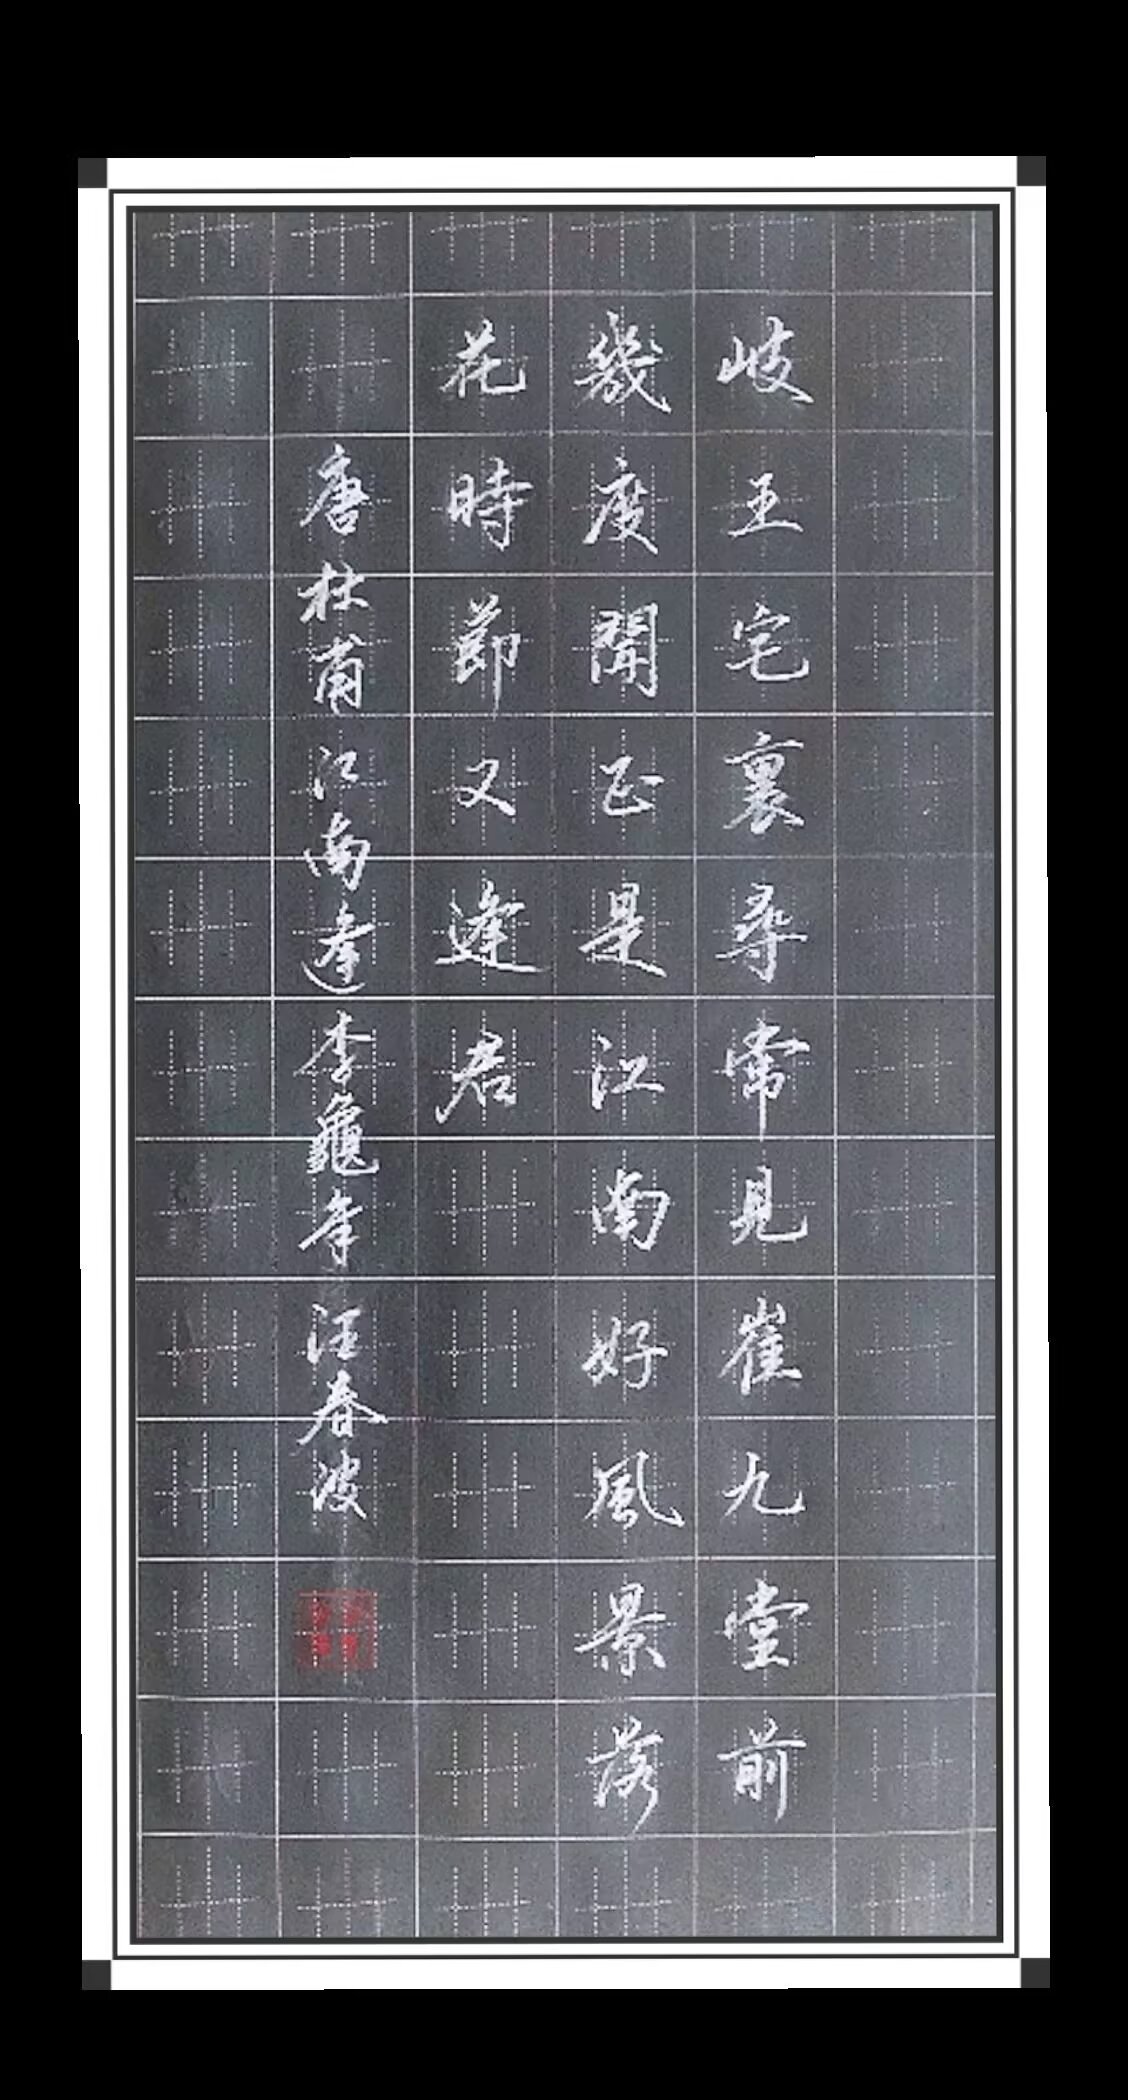 岐王宅裏尋常見崔九堂前
幾度聞正是江南好風景落
花時節又逢君
唐杜甫江南逢李龜年汪春波